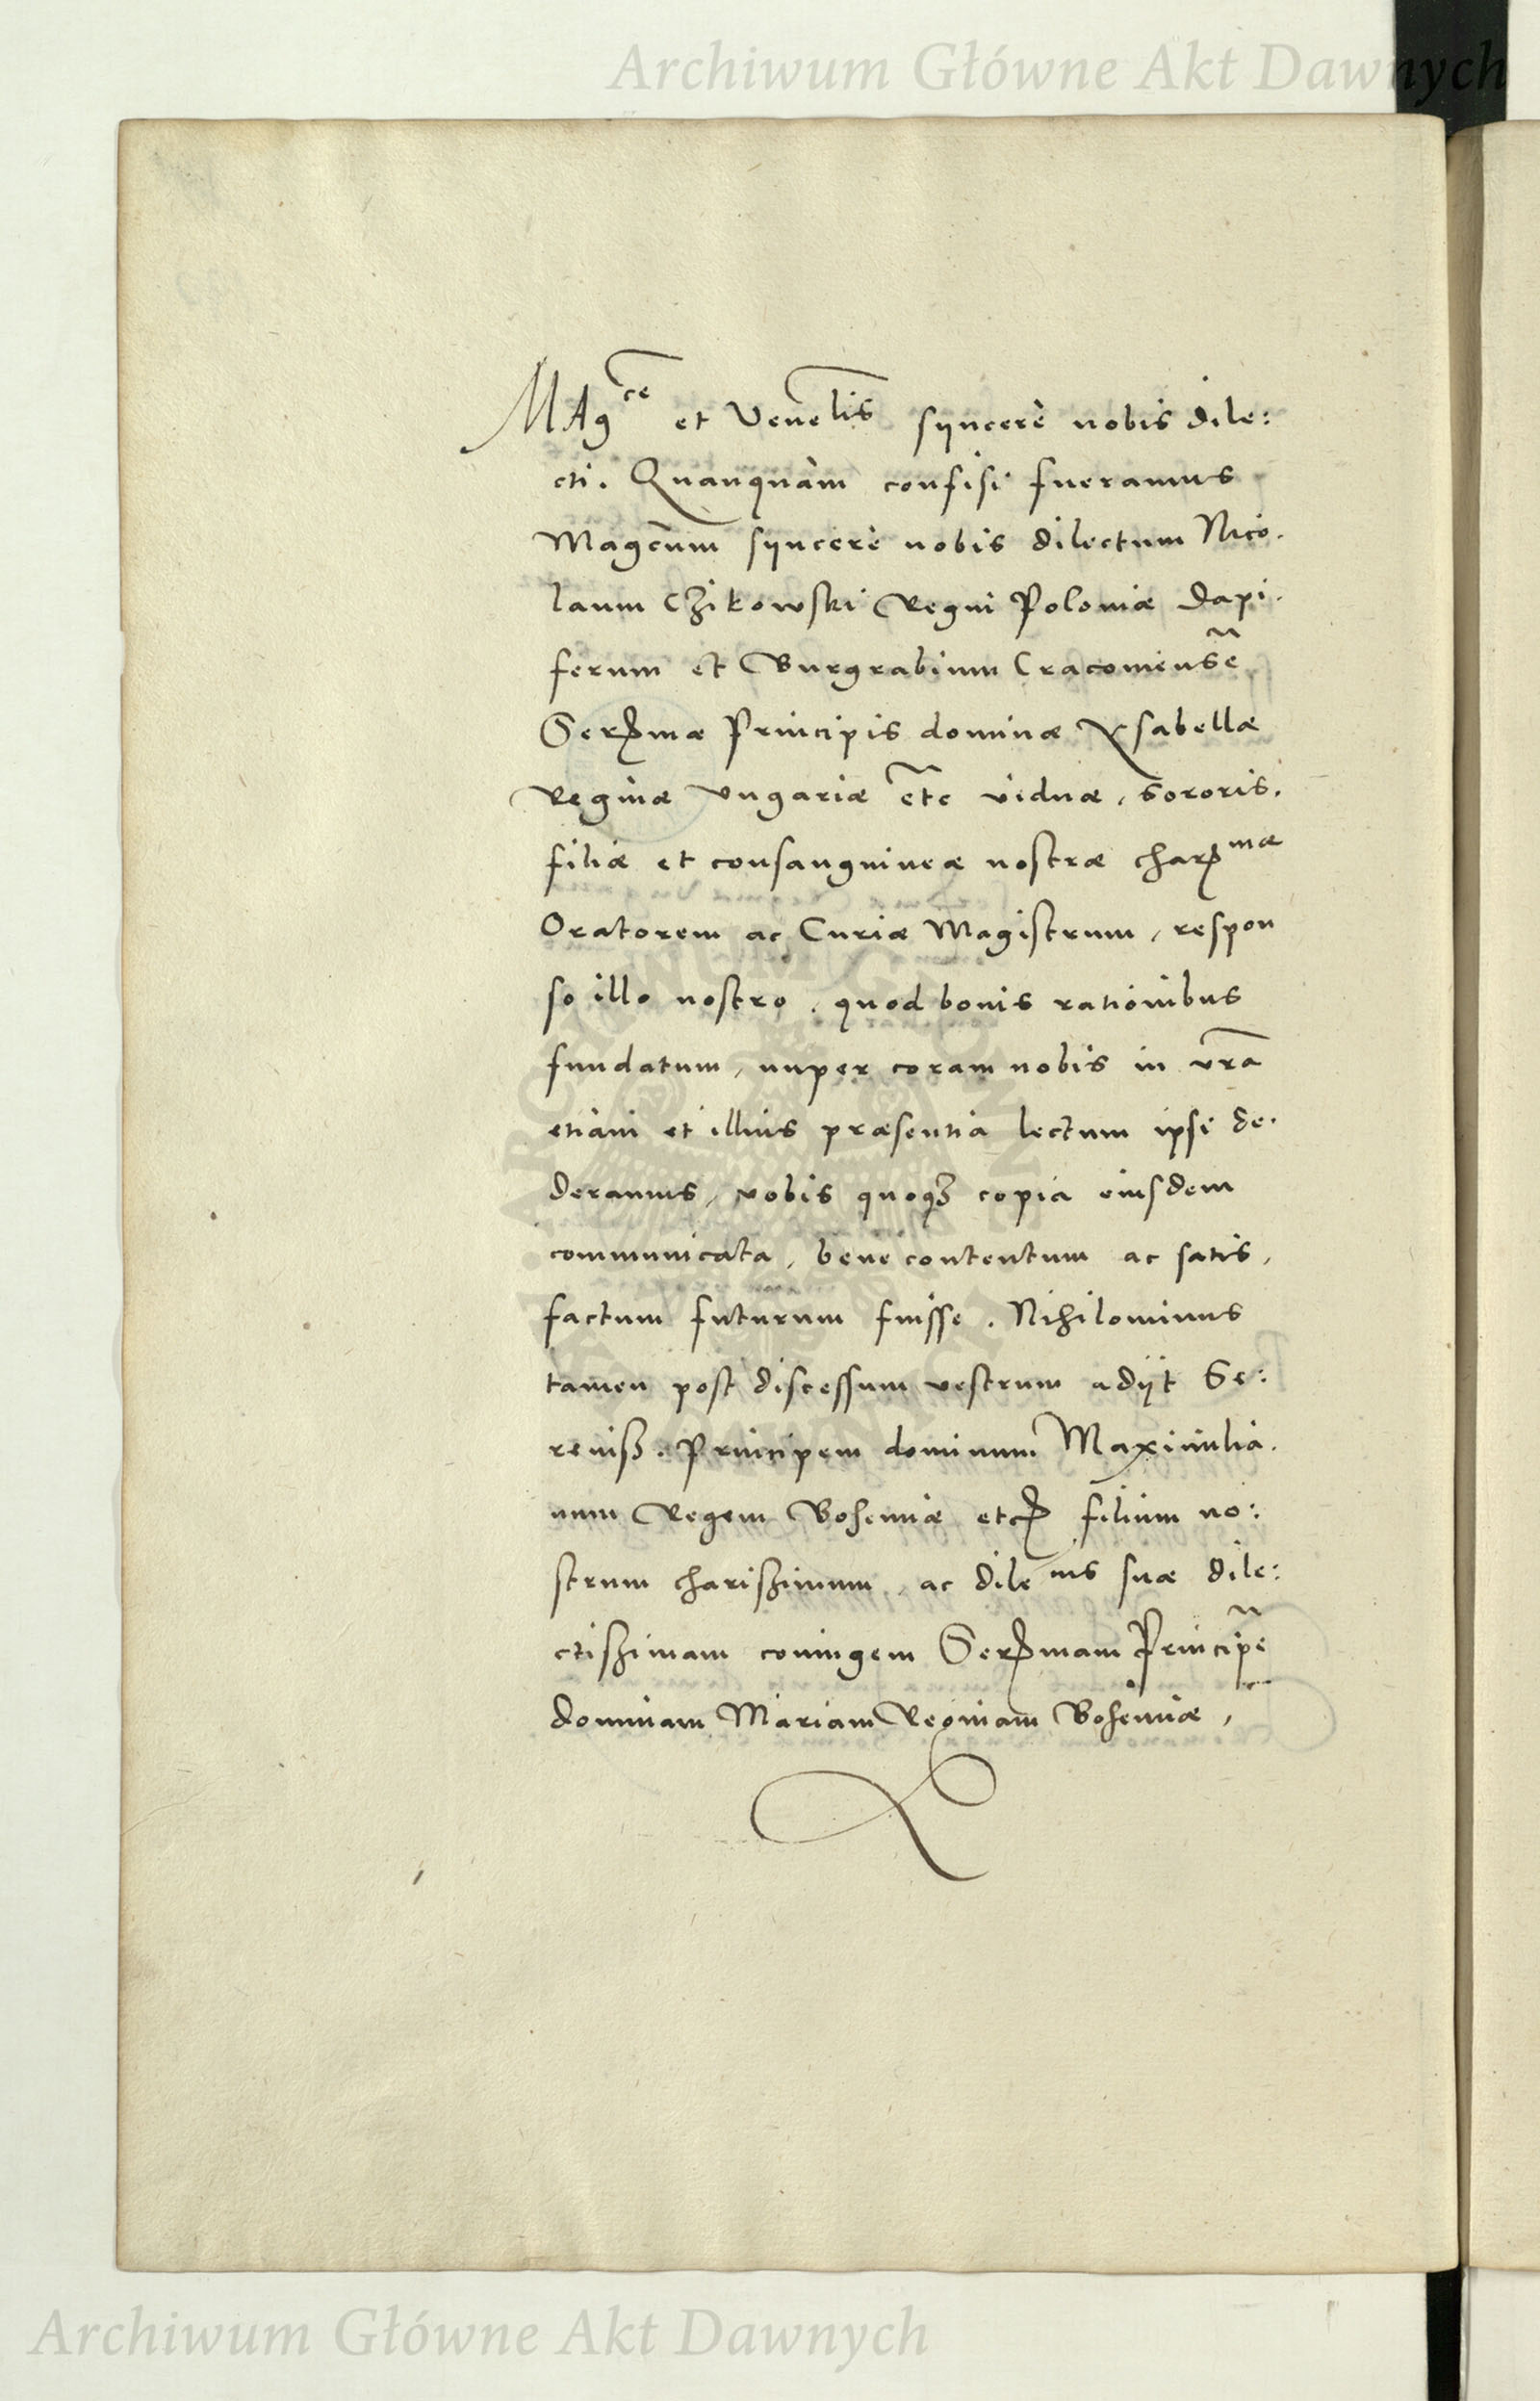 Archiwum Główne Akt Dawnych
MAg^ce et Venelis syncerè nobis dile:
cti. Quanquàm confisi fueramus
Magcum syncerè nobis dilectum Nico.
laum Chikowski Regni Poloniæ Dapi.
ferum et Burgrabium Cracoviensẽ
Serᵐmæ Principis dominæ Ysabellæ
Reginæ Vngariæ etc viduæ, Sororis.
filiæ et consanguineæ nostræ char^mæ
Oratorem ac Curiæ Magistrum, respon
so illo nostro, quod bonis rationibus
fundatum, nuper coram nobis in vrã
etiam et illius præsentia lectum ipsi de.
deramus, vobis quoqȝ copia eiusdem
communicata, bene contentum ac satis,
factum futurum fuisse. Nihilominus
tamen post discessum vestrum adijt Se:
reniß. Principem dominum Maximilia.
num Regem Bohemiæ etc filium no:
strum charißimum, ac dile^nis suæ dile:
ctißimam coniugem Sermam Principẽ
dominam Mariam Reginam Bohemiæ,
ARCHIWUM GŁÓWNE AKT DAWNYCH
Archiwum Główne Akt Dawnych